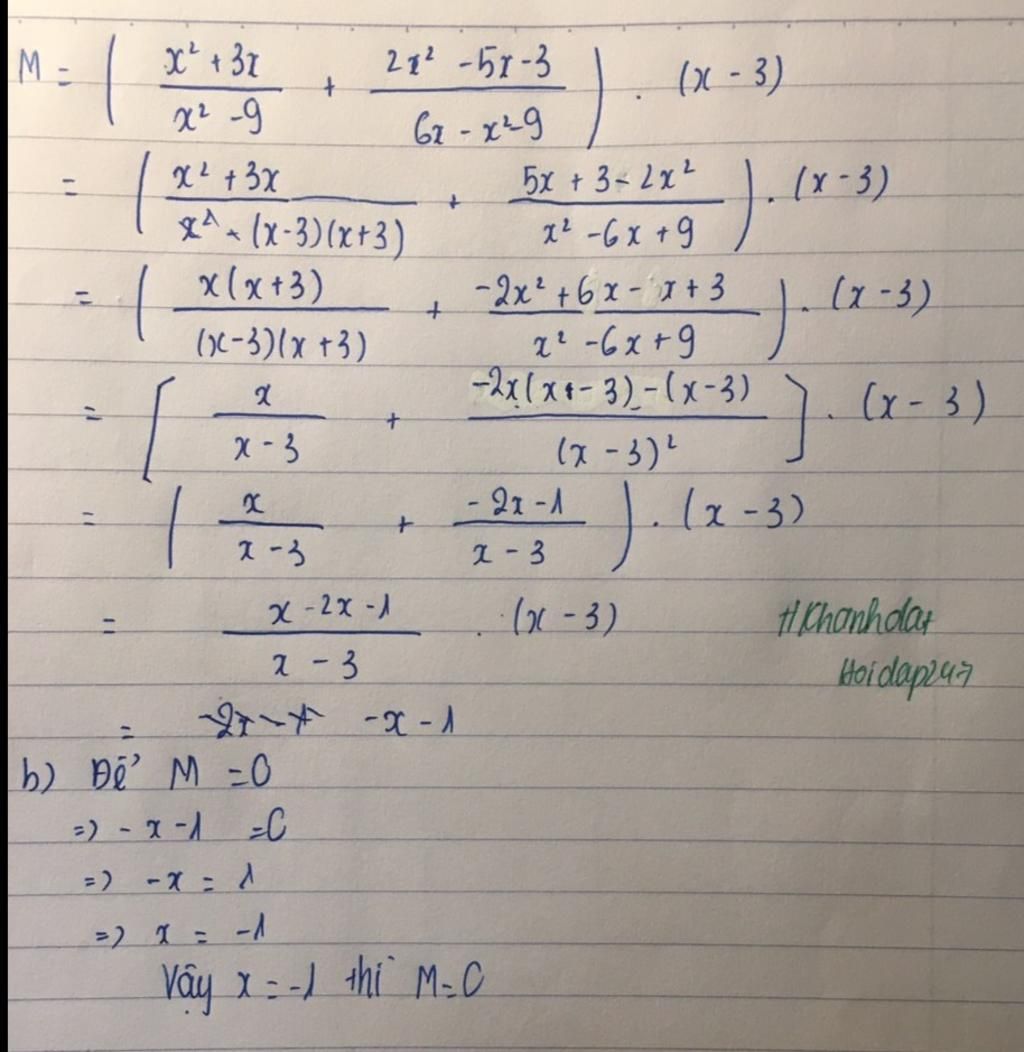 M = ( (x² + 3x)/(x² - 9) + (2x² - 5x - 3)/(6x - x² - 9) ) . (x - 3)
= ( (x² + 3x)/((x-3)(x+3)) + (5x + 3 - 2x²)/(x² - 6x + 9) ) . (x - 3)
= ( x(x+3)/((x-3)(x+3)) + (-2x² + 6x - x + 3)/(x² - 6x + 9) ) . (x - 3)
= [ x/(x - 3) + (-2x(x - 3) - (x - 3))/(x - 3)² ] . (x - 3)
= ( x/(x - 3) + (-2x - 1)/(x - 3) ) . (x - 3)
= (x - 2x - 1)/(x - 3) . (x - 3)
#Khanhdat
Hoidap247
= -x - 1
b) Để M = 0
=> -x - 1 = 0
=> -x = 1
=> x = -1
Vậy x = -1 thì M = 0